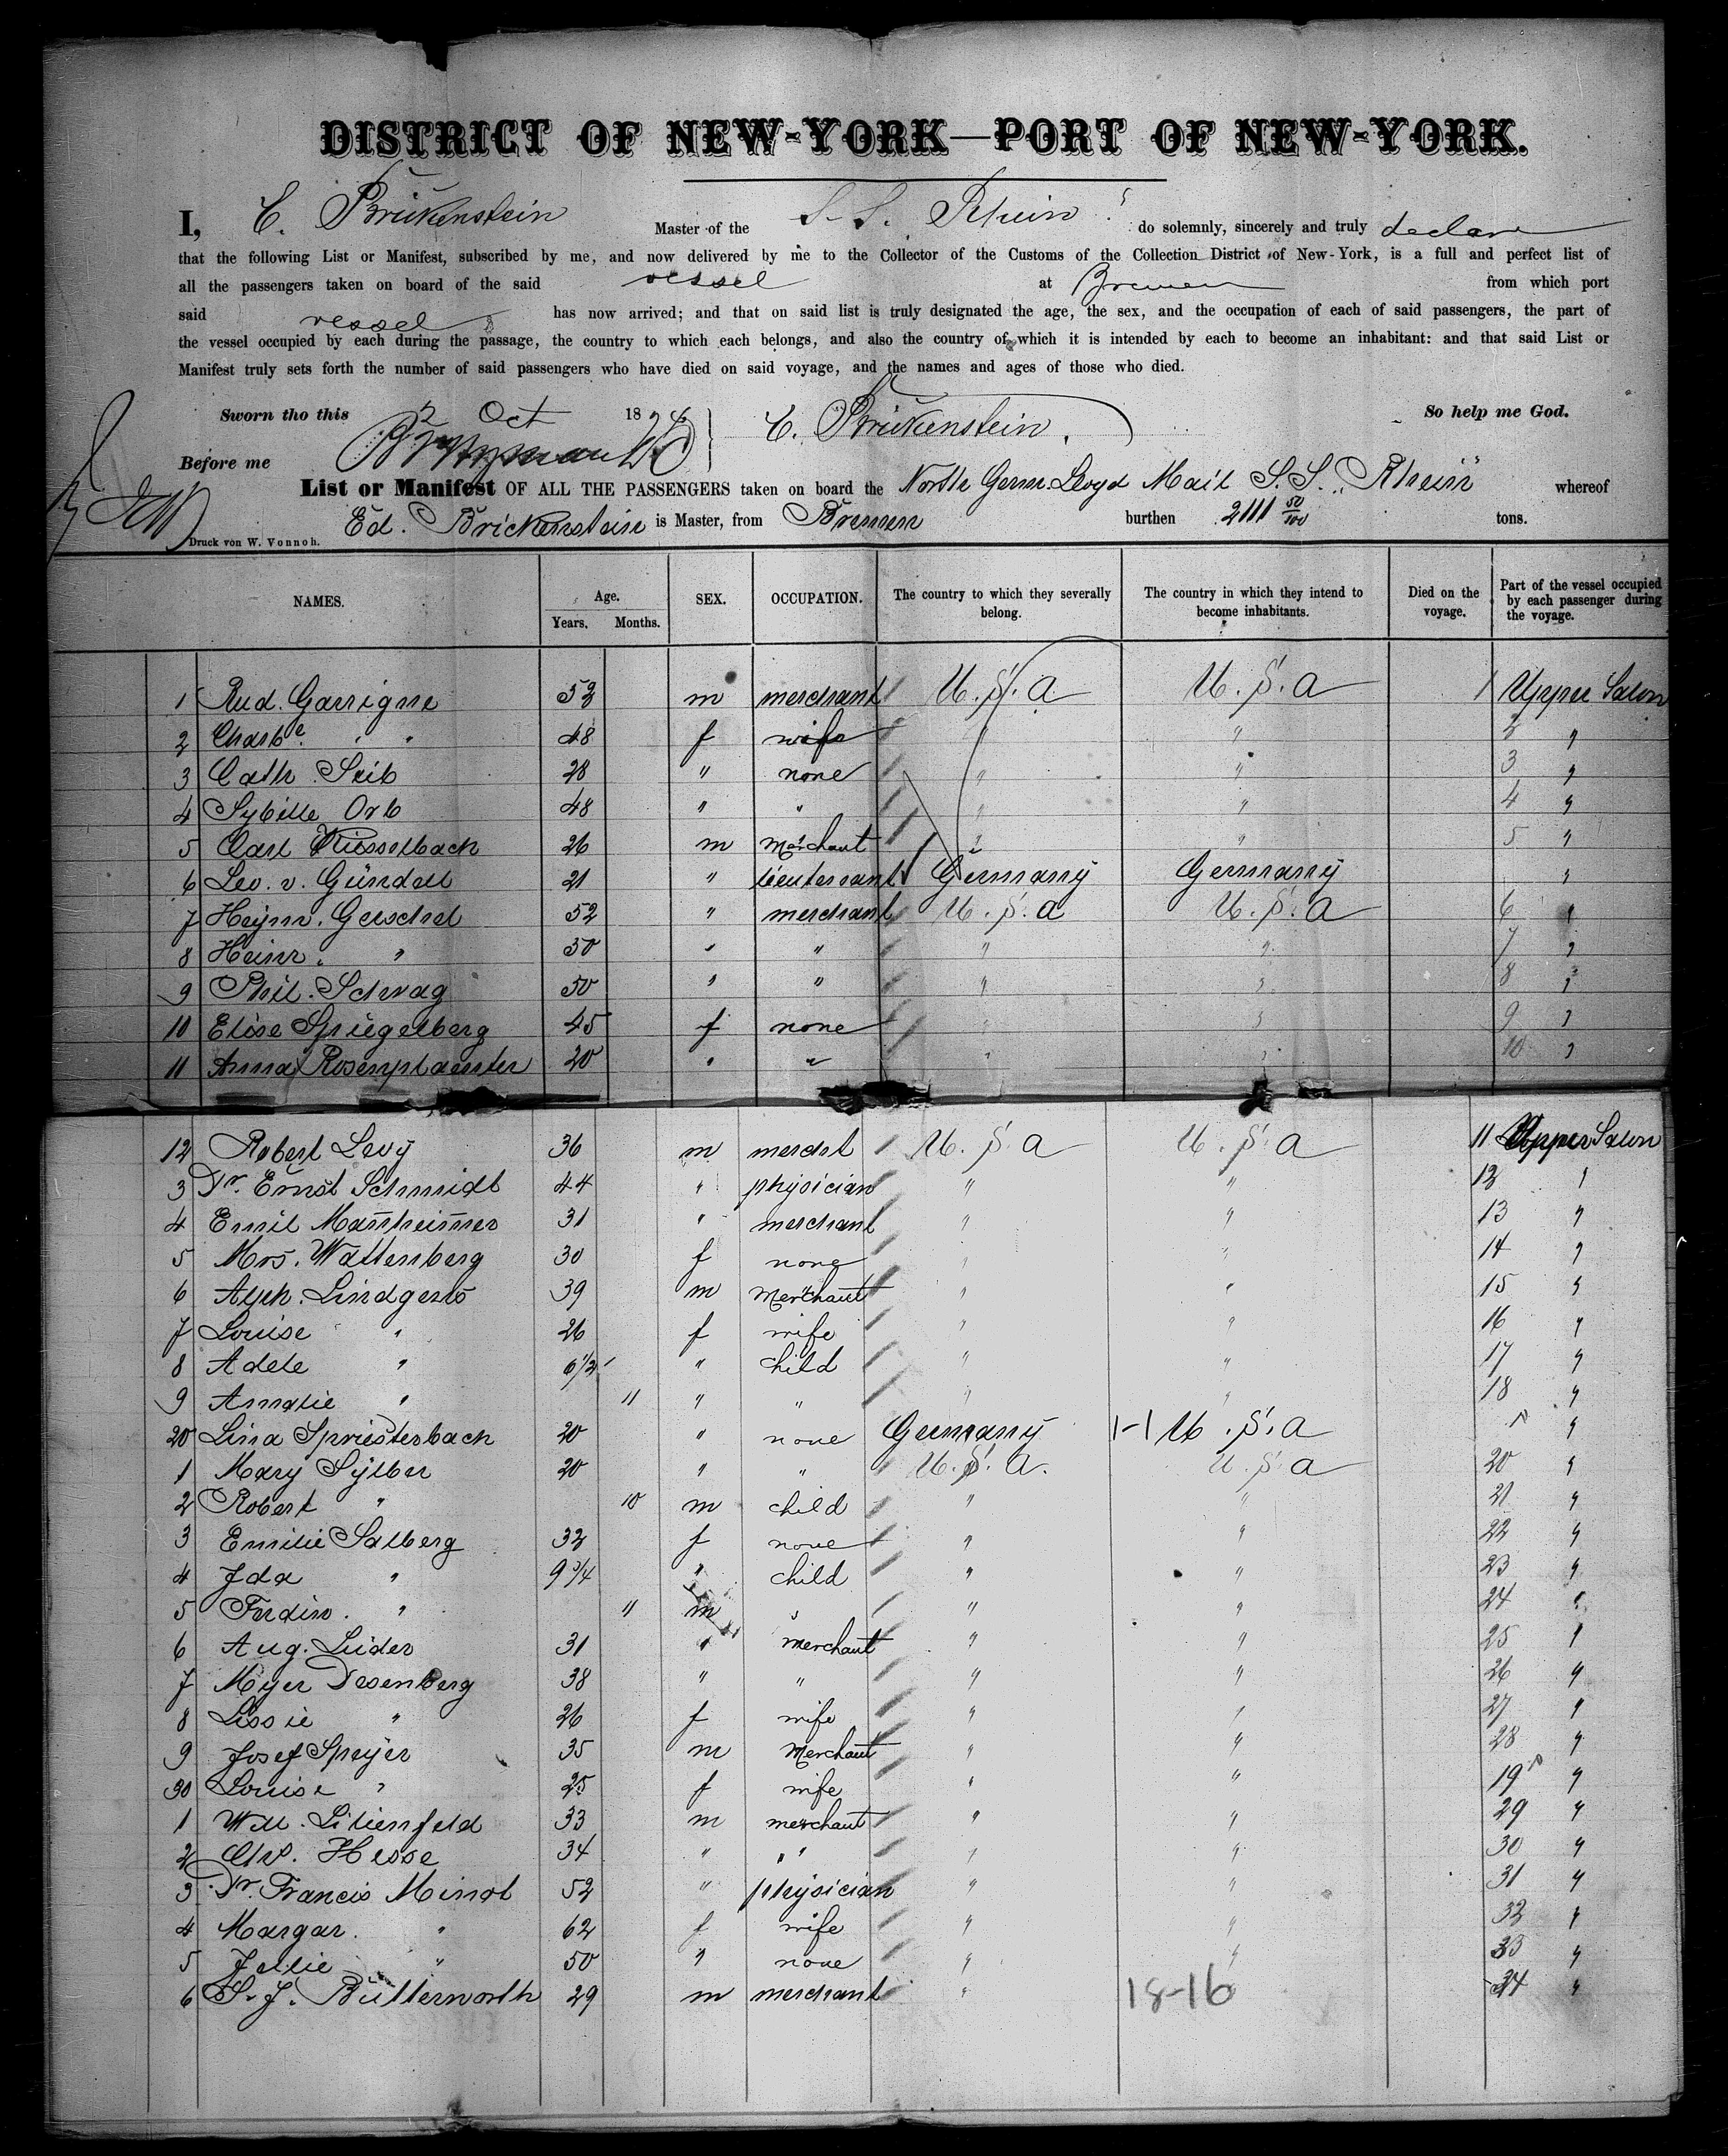 DISTRICT OF NEW-YORK—PORT OF NEW-YORK.
I, E. Brickenstein Master of the S. S. Rhein do solemnly, sincerely and truly declare
that the following List or Manifest, subscribed by me, and now delivered by me to the Collector of the Customs of the Collection District of New-York, is a full and perfect list of
all the passengers taken on board of the said vessel at Bremen from which port
said vessel has now arrived; and that on said list is truly designated the age, the sex, and the occupation of each of said passengers, the part of
the vessel occupied by each during the passage, the country to which each belongs, and also the country of which it is intended by each to become an inhabitant: and that said List or
Manifest truly sets forth the number of said passengers who have died on said voyage, and the names and ages of those who died.
Sworn tho this 2 Oct 18 E. Brickenstein. So help me God.
Before me
List or Manifest OF ALL THE PASSENGERS taken on board the North Germ. Lloyd Mail S.S. "Rhein" whereof
Ed. Brickenstein is Master, from Bremen burthen 2111 50/100 tons.
Druck von W. Vonnoh.
NAMES. Age. Years. Months. SEX. OCCUPATION. The country to which they severally belong. The country in which they intend to become inhabitants. Died on the voyage. Part of the vessel occupied by each passenger during the voyage.
1 Rud. Garrigue 52 m merchant U. S. A U. S. A 1 Upper Salon
2 Charl.e " 48 f wife " " 2 "
3 Cath. Seib 28 " none " " 3 "
4 Sybille Orb 48 " " " " 4 "
5 Carl Kiesselbach 26 m merchant " " 5 "
6 Leo. v. Gündell 21 " lieutenant Germany Germany "
7 Heym. Gerschel 52 " merchant U. S. A U. S. A 6 "
8 Heinr. " 30 " " " " 7 "
9 Phil. Schwag 50 " " " " 8 "
10 Elise Spiegelberg 45 f none " " 9 "
11 Anna Rosenplaenter 20 " " " " 10 "
12 Robert Levy 36 m mercht U. S. A U. S. A 11 Upper Salon
3 Dr. Ernst Schmidt 44 " physician " " 12 "
4 Emil Mannheimer 31 " merchant " " 13 "
5 Mrs. Wattenberg 30 f none " " 14 "
6 Lindgens 39 m merchant " " 15 "
7 Louise " 26 f wife " " 16 "
8 Adele " 6 1/2 " child " " 17 "
9 Amalie " 11 " " " " 18 "
20 Lina Spriesterbach 20 " none Germany 1-1 U. S. A "
1 Mary Sylber 20 " " U. S. A. U. S. A 20 "
2 Robert " 10 m child " " 21 "
3 Emilie Salberg 32 f none " " 22 "
4 Ida " 9 3/4 " child " " 23 "
5 Ferdin. " 11 m " " " 24 "
6 Aug. Lüder 31 " merchant " " 25 "
7 Myer Desenberg 38 " " " " 26 "
8 Lissie " 26 f wife " " 27 "
9 Josef Speyer 35 m Merchant " " 28 "
30 Louise " 25 f wife " " 19 "
1 Will. Lilienfeld 33 m merchant " " 29 "
2 Chr. Hesse 34 " " " " 30 "
3 Dr. Francis Minot 52 " physician " " 31 "
4 Margar. " 62 f wife " " 32 "
5 " 50 " none " " 33 "
6 S. J. Butterworth 29 m merchant " " 34 "
18-16